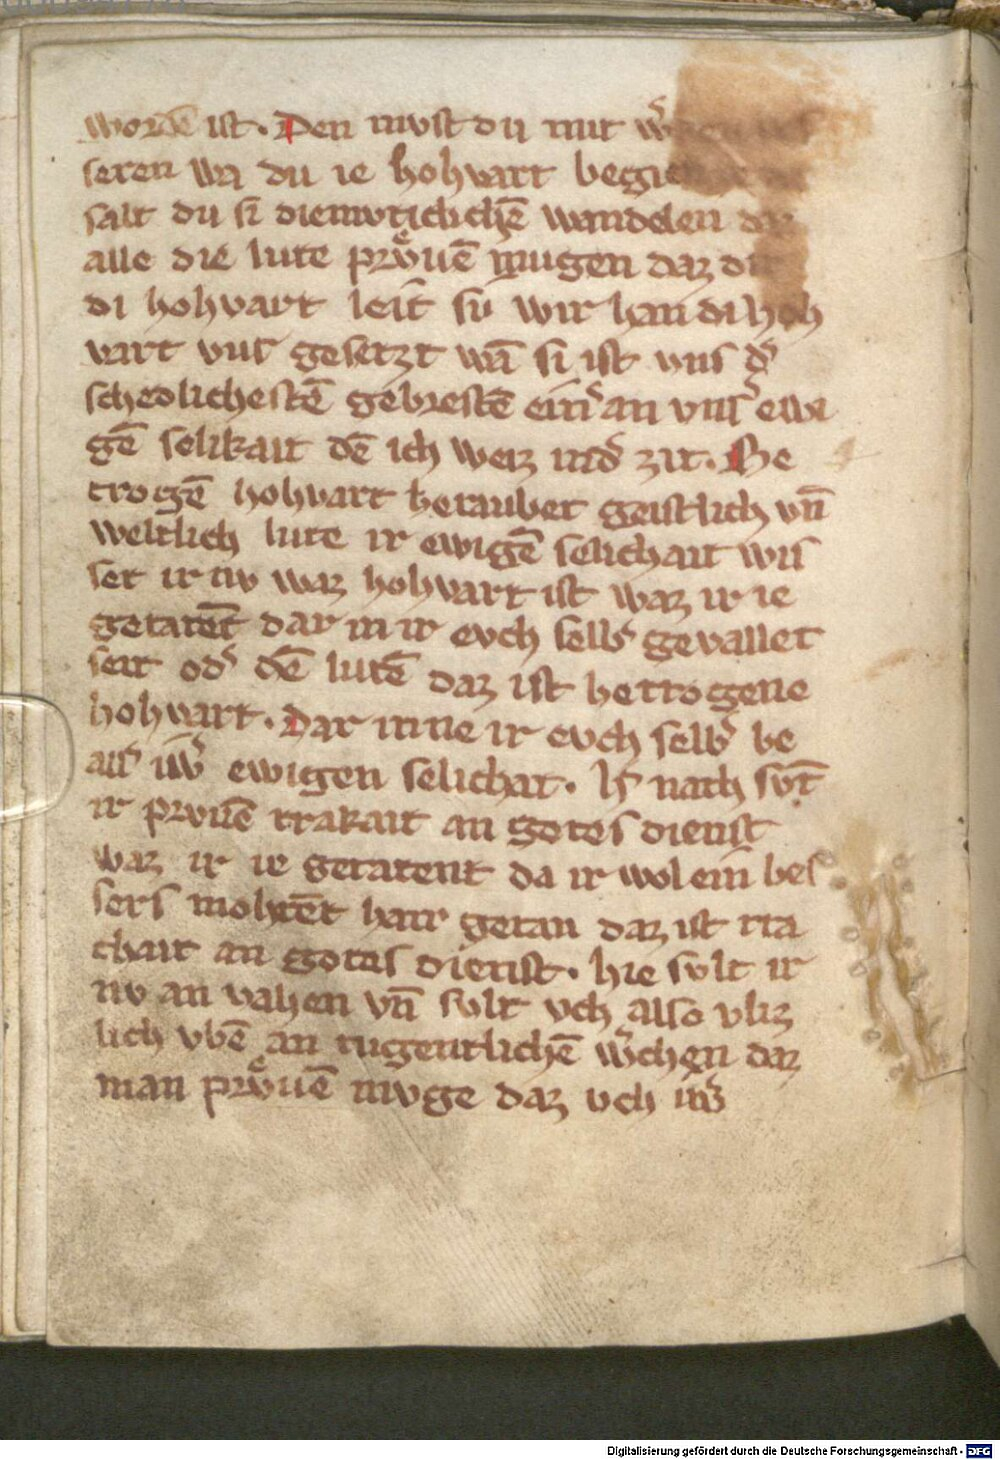 wordē ist. Den mvst du mit
seren wa du ie hohvart
salt du si diemvticlichē wandelen
alle die lute prvͤuē mugen daz
di hohvart leit sū wir han di hoh
vart vns gesetzt wā si ist vns d͛
schedlichestē gebrestē ein͛ an vns͛ ewi
gē selikait dē ich weiz ind͛ zit. Be
trogē hohvart beraubet geistlich vn̄
weltlich lute ir ewigē selichait wis
set ir nv waz hohvart ist waz ir ie
getatēt dar in ir evch selb͛ gevallet
seit od͛ dē lutē daz ist betrogene
hohvart. Dar inne ir evch selb͛ be
ir͛ ewigen selichat. h͛ nach svt̄
ir prvuē trakait an gotes dienst
waz ir ie getatent da ir wol ein̄ bes
sers mohtēt hait getan daz ist tra
chait an gotes dienst. hie svlt ir
nv an vahen vn̄ svlt vch also vliz
lich vbē an tugentlichē w͛chen daz
man prvͤuē mvge daz vch iw͛
Digitalisierung gefördert durch die Deutsche Forschungsgemeinschaft - DFG